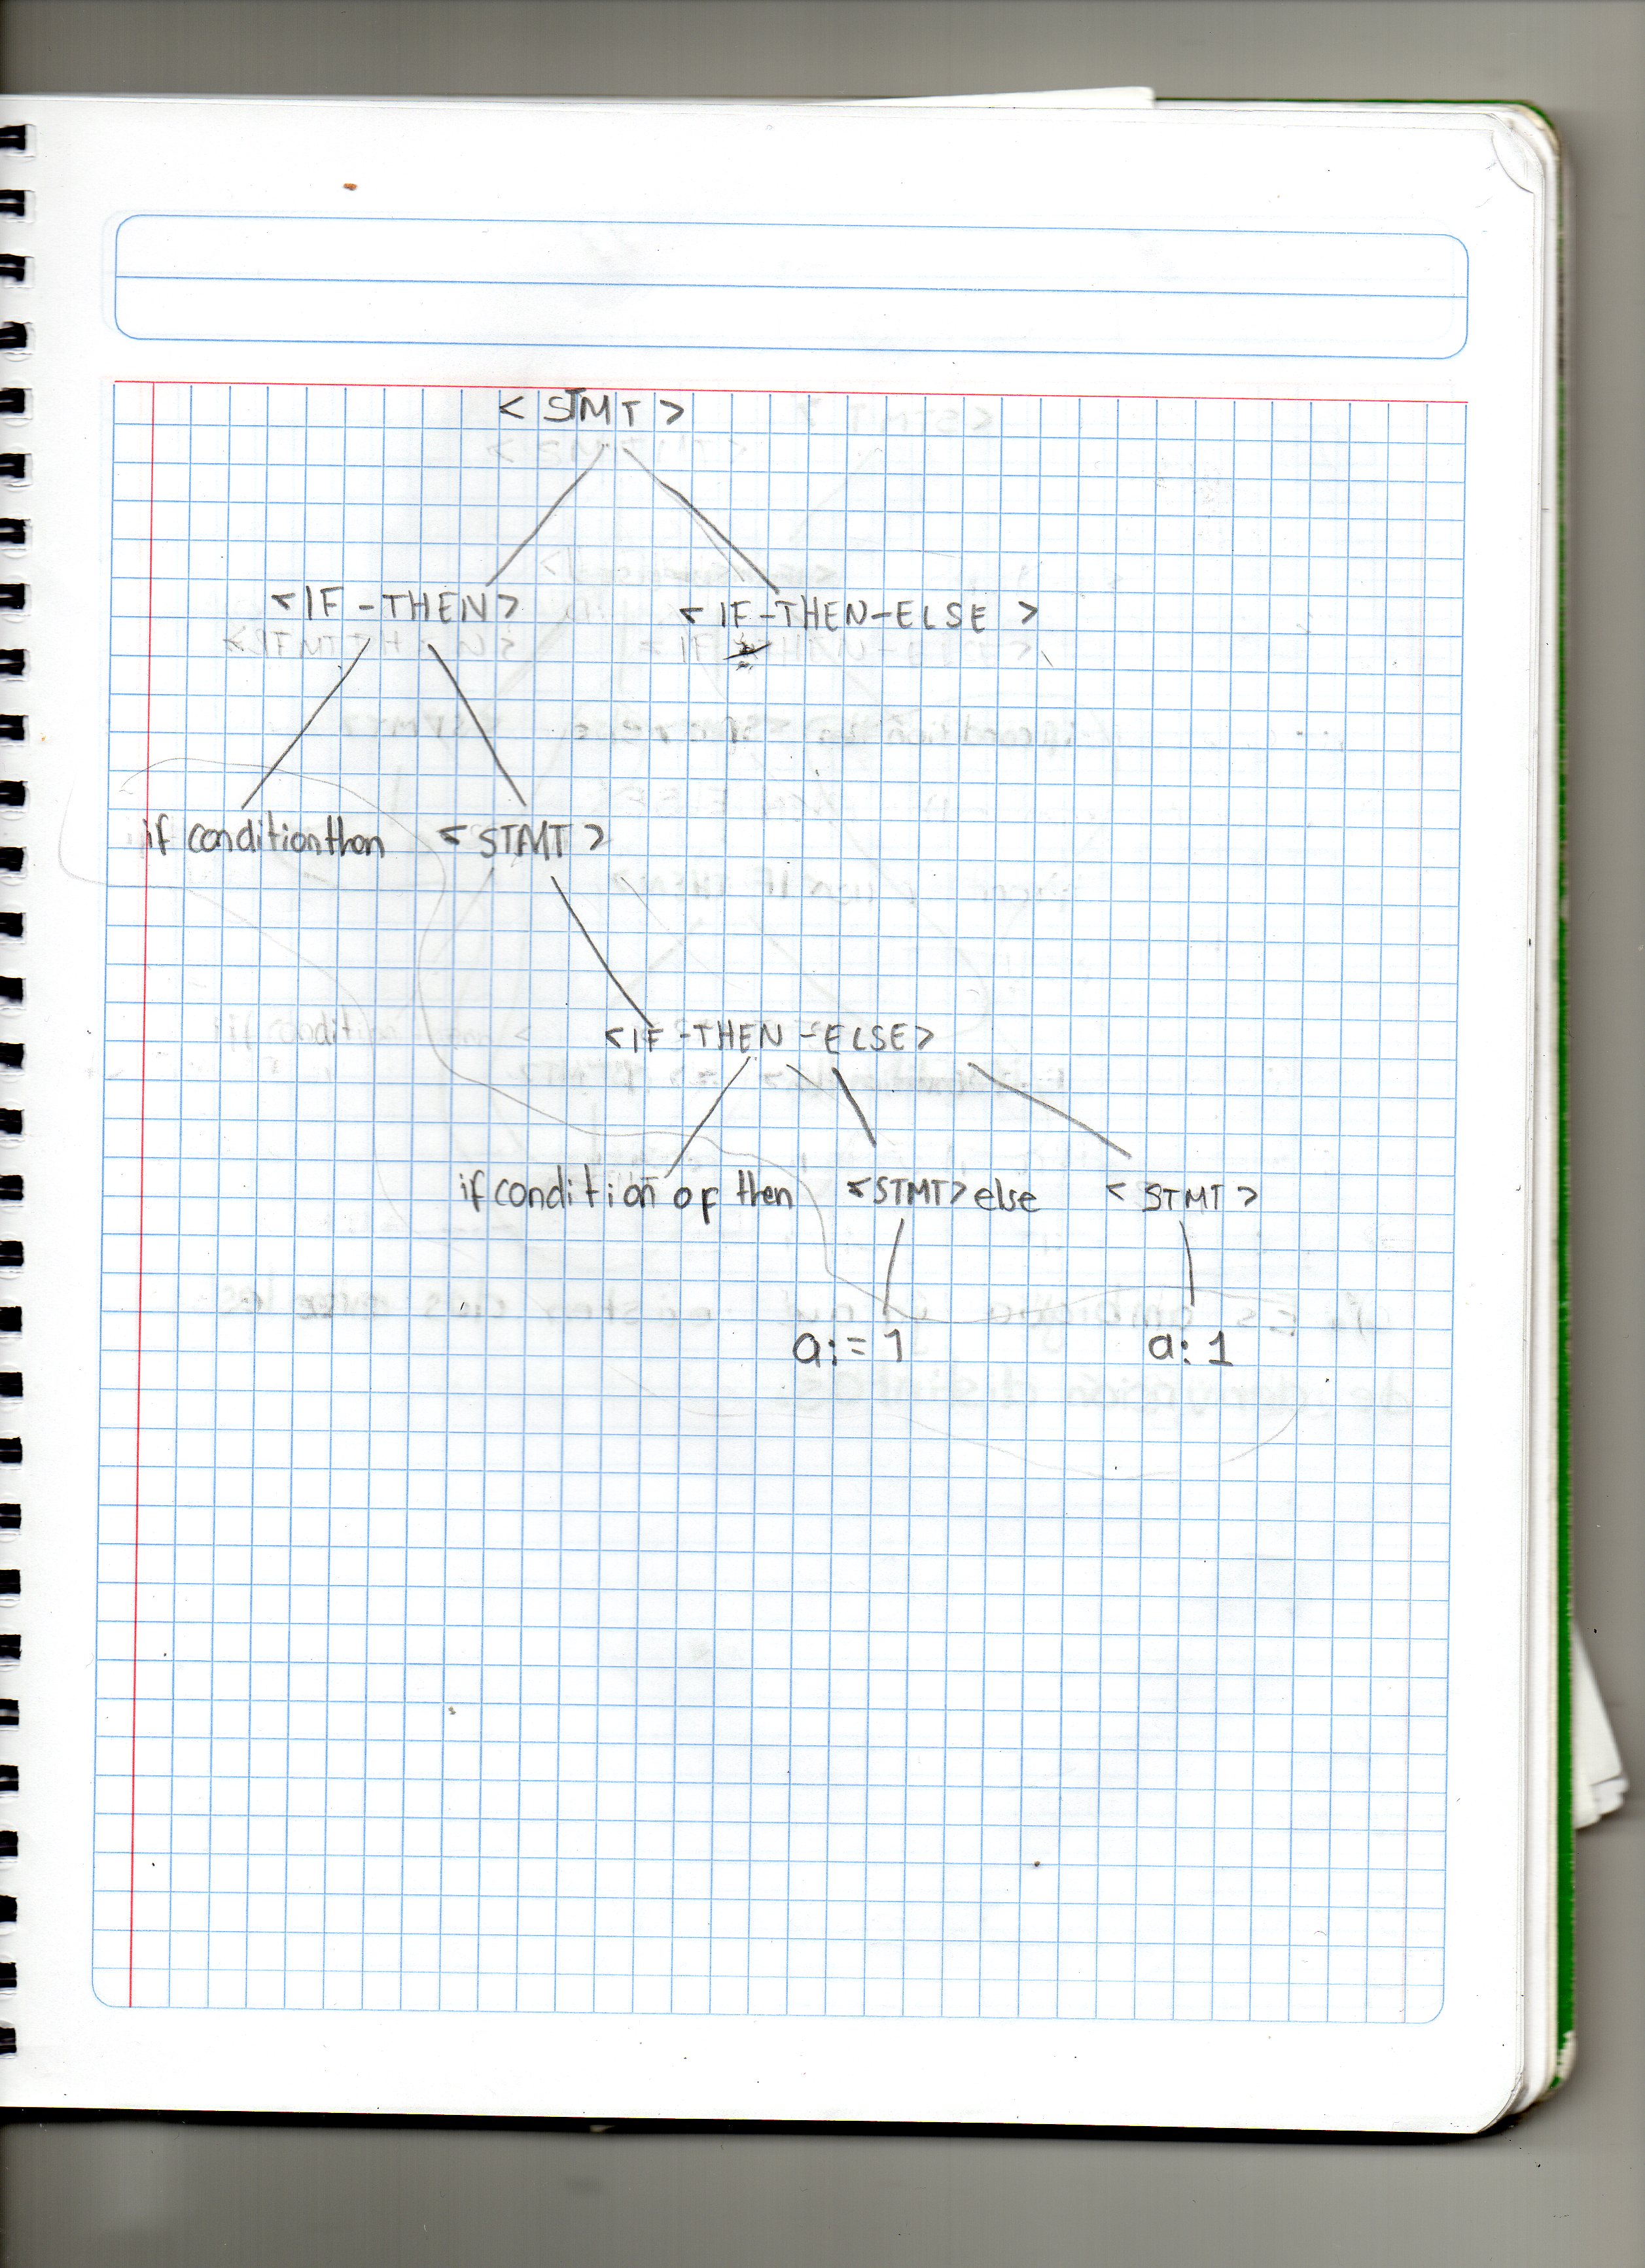 < STMT >
<IF-THEN> <IF-THEN-ELSE >
if condition then <STMT>
<IF-THEN-ELSE>
if condition of then <STMT> else < STMT >
a:=1 a:1